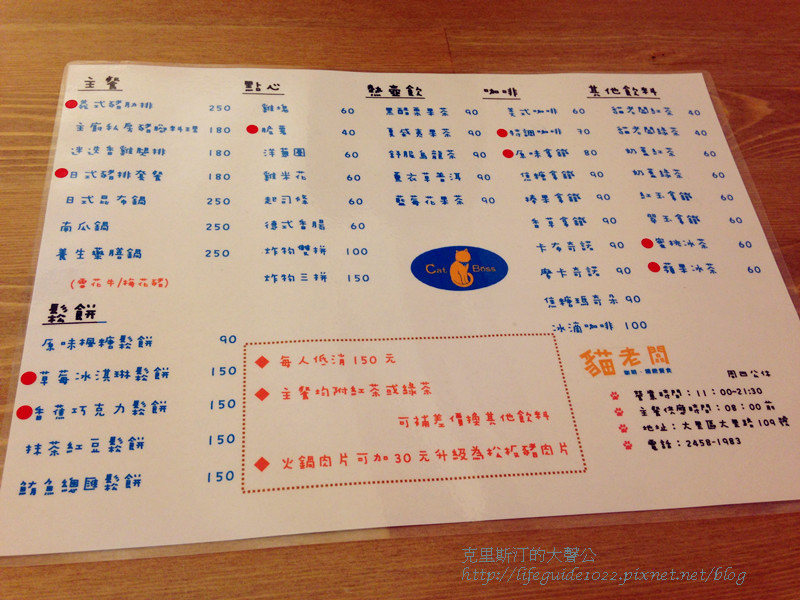 主餐
義式豬肋排 250
主廚私房豬腳料理 180
迷迭香雞腿排 180
日式豬排套餐 180
日式昆布鍋 250
南瓜鍋 250
養生藥膳鍋 250
(雪花牛/梅花豬)
鬆餅
原味楓糖鬆餅 90
草莓冰淇淋鬆餅 150
香蕉巧克力鬆餅 150
抹茶紅豆鬆餅 150
鮪魚總匯鬆餅 150
點心
雞塊 60
脆薯 40
洋蔥圈 60
雞米花 60
起司條 60
德式香腸 60
炸物雙拼 100
炸物三拼 150
熱壺飲
黑醋栗果茶 90
夏威夷果茶 90
舒服烏龍茶 90
薰衣草普洱 90
藍莓花果茶 90
Cat Boss
咖啡
美式咖啡 60
特調咖啡 70
原味拿鐵 80
焦糖拿鐵 90
榛果拿鐵 90
香草拿鐵 90
卡布奇諾 90
摩卡奇諾 90
焦糖瑪奇朵 90
冰滴咖啡 100
其他飲料
貓老闆紅茶 40
貓老闆綠茶 40
奶蓋紅茶 60
奶蓋綠茶 60
紅玉拿鐵 60
翠玉拿鐵 60
蜜桃冰茶 60
蘋果冰茶 60
◆ 每人低消150元
◆ 主餐均附紅茶或綠茶
可補差價換其他飲料
◆ 火鍋肉片可加30元升級為松板豬肉片
貓老闆
周四公休
營業時間:11:00-21:30
主餐供應時間:08:00前
地址:大里區大里路109號
電話:2458-1983
克里斯汀的大聲公
http://lifeguide1022.pixnet.net/blog